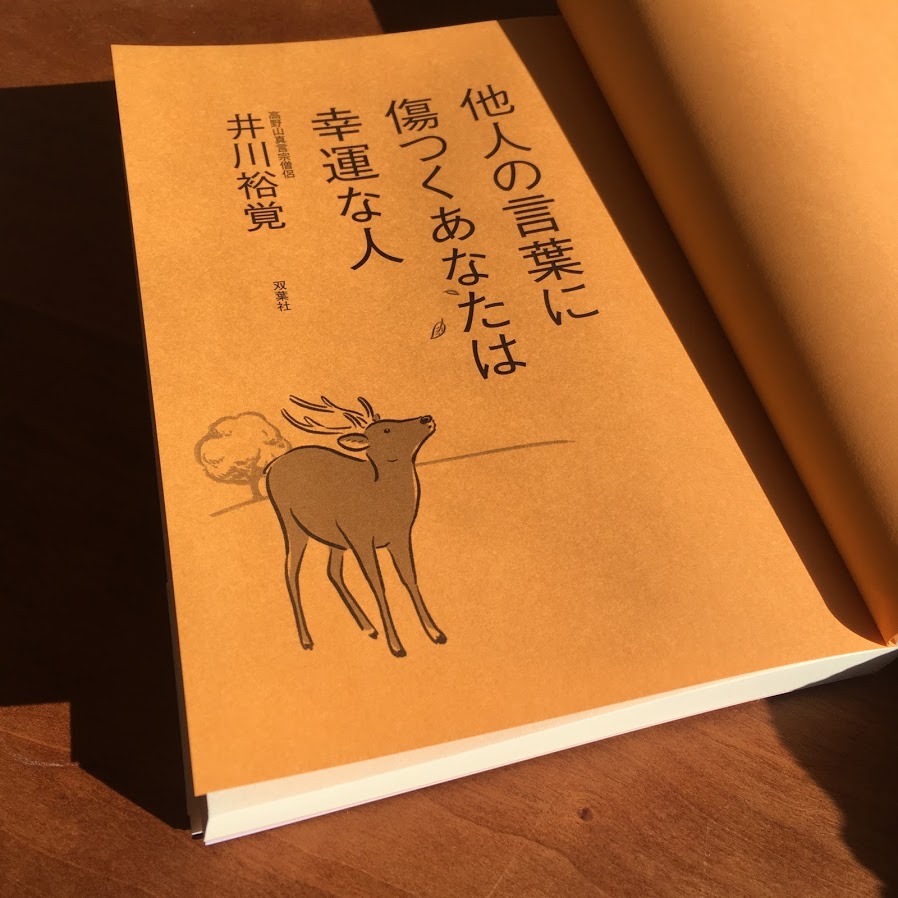 他人の言葉に
傷つくあなたは
幸運な人
高野山真言宗僧侶
井川裕覚
双葉社